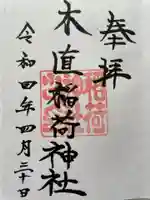 奉拝
木直稲荷神社
令和四年四月三十日